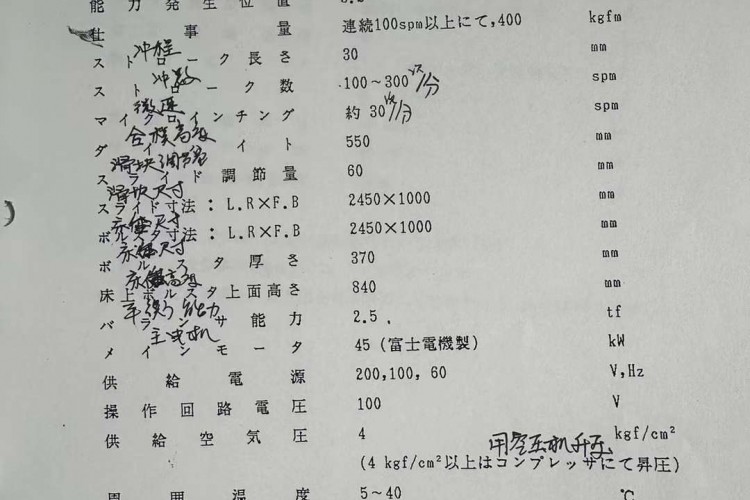 能力発生位置
仕事量 連続100spm以上にて,400 kgfm
冲程
ストローク長さ 30 mm
冲数
ストローク数 100~300 spm
微速
マイクロインチング 約30 spm
合模高度
ダイハイト 550 mm
滑块调节量
スライド調節量 60 mm
滑块尺寸
スライド寸法:L.R×F.B 2450×1000 mm
ボルスタ寸法:L.R×F.B 2450×1000 mm
ボルスタ厚さ 370 mm
床上ボルスタ上面高さ 840 mm
能力
バランサ能力 2.5 tf
主电机
メインモータ 45(富士電機製) kW
供給電源 200,100,60 V,Hz
操作回路電圧 100 V
供給空気圧 4 kgf/cm²
用空压机升压
(4 kgf/cm²以上はコンプレッサにて昇圧)
周囲温度 5~40 ℃